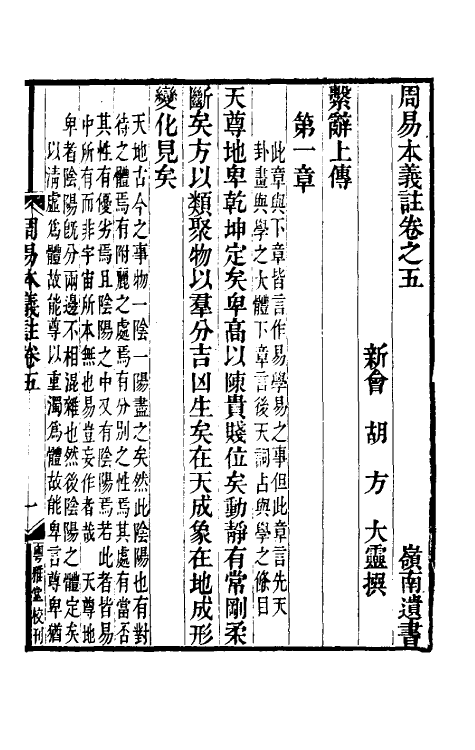 周易本義註卷之五
嶺南遺書
新會胡方大靈撰
繫辭上傳
第一章
此章與下章皆言作易學易之事但此章言先天
卦畫與學之大體下章言後天詞占與學之條目
天尊地卑乾坤定矣卑高以陳貴賤位矣動靜有常剛柔
斷矣方以類聚物以羣分吉凶生矣在天成象在地成形
變化見矣
天地古今之事物一陰一陽盡之矣然此陰陽也有對
待之體焉有附麗之處焉有分别之性焉其處有當否
其性有優劣焉且陰陽之中又有陰陽焉若此者皆易
中所有而非宇宙所本無也易豈妄作者哉 天尊地
卑者陰陽旣分兩邊不相混雜也然後陰陽之體定矣
以清虛爲體故能尊以重濁爲體故能卑言尊卑猶
周易本義註卷五
一
粵雅堂校刊